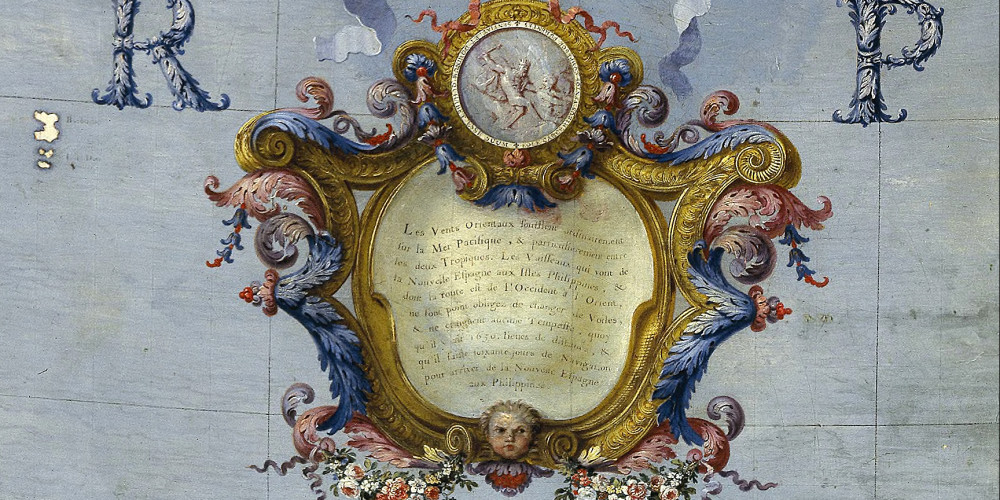 R P
Les Vents Orientaux soufflent ordinairement
sur la Mer Pacifique, & particulierement entre
les deux Tropiques. Les Vaisseaux qui vont de
la Nouvelle Espagne aux Isles Philippines, &
dont la route est de l'Occident à l'Orient,
ne sont point obligez de changer de Voiles,
& ne craignent aucune Tempeste, quoy
qu'il y ait 1650. lieues de distance, &
qu'il faille soixante jours de Navigation
pour arriver de la Nouvelle Espagne
aux Philippines.